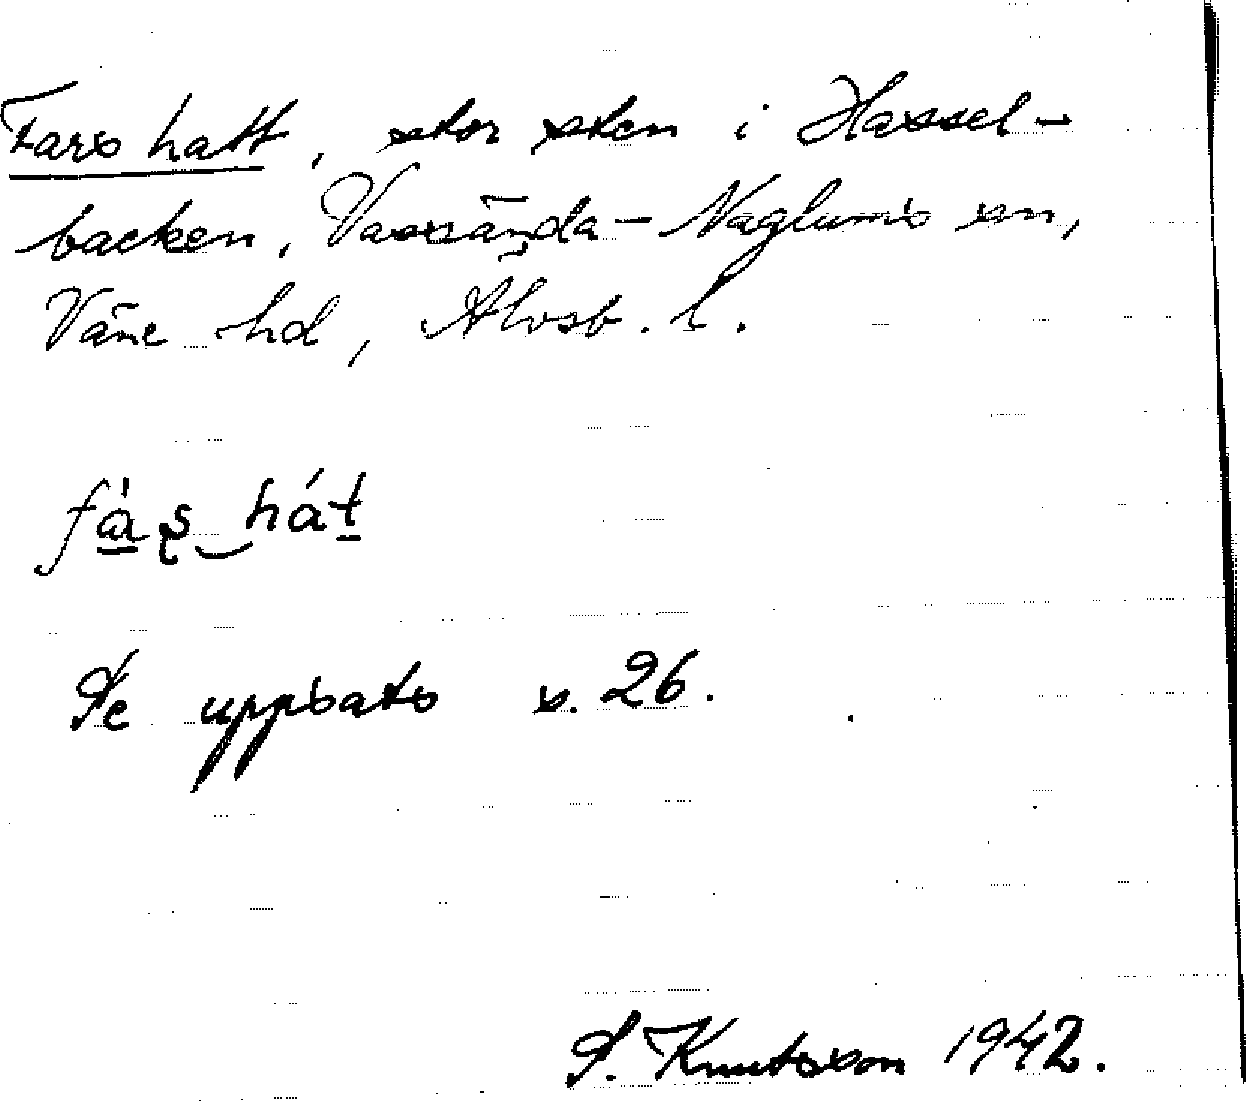 Fars hatt, stor sten i Hassel-
backen, Vassända-Naglums sn,
Väne hd, Älvsb. l.
fa̲̍ʂ‿hát̲
Se uppsats s. 26.
S. Knutsson 1942.